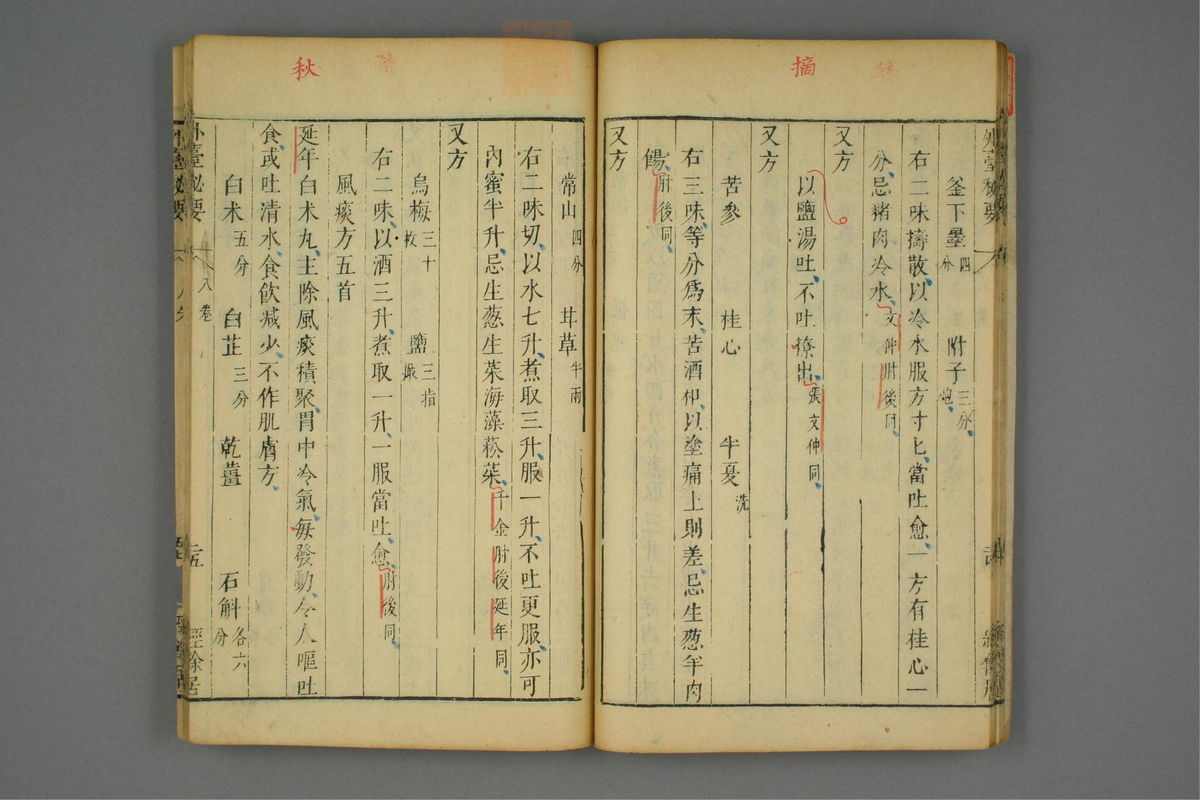 摘
外臺秘要
釜下墨四分 附子三分炮
右二味擣散以冷水服方寸匕當吐愈一方有桂心一
分忌豬肉冷水文仲肘後同
又方
以鹽湯吐不吐撩出張文仲同
又方
苦參 桂心 半夏洗
右三味等分爲末苦酒和以塗痛上則差忌生葱羊肉
餳肘後同
又方
秋
常山四分 甘草半兩
右二味切以水七升煮取三升服一升不吐更服亦可
內蜜半升忌生葱生菜海藻菘菜千金肘後延年同
又方
烏梅三十枚 鹽三指撮
右二味以酒三升煮取一升一服當吐愈肘後同
風痰方五首
延年白朮丸主除風痰積聚胃中冷氣每發動令人嘔吐
食或吐清水食飲減少不作肌膚方
白朮五分 白芷三分 乾薑 石斛各六分
外臺秘要 八卷 二五 經餘居